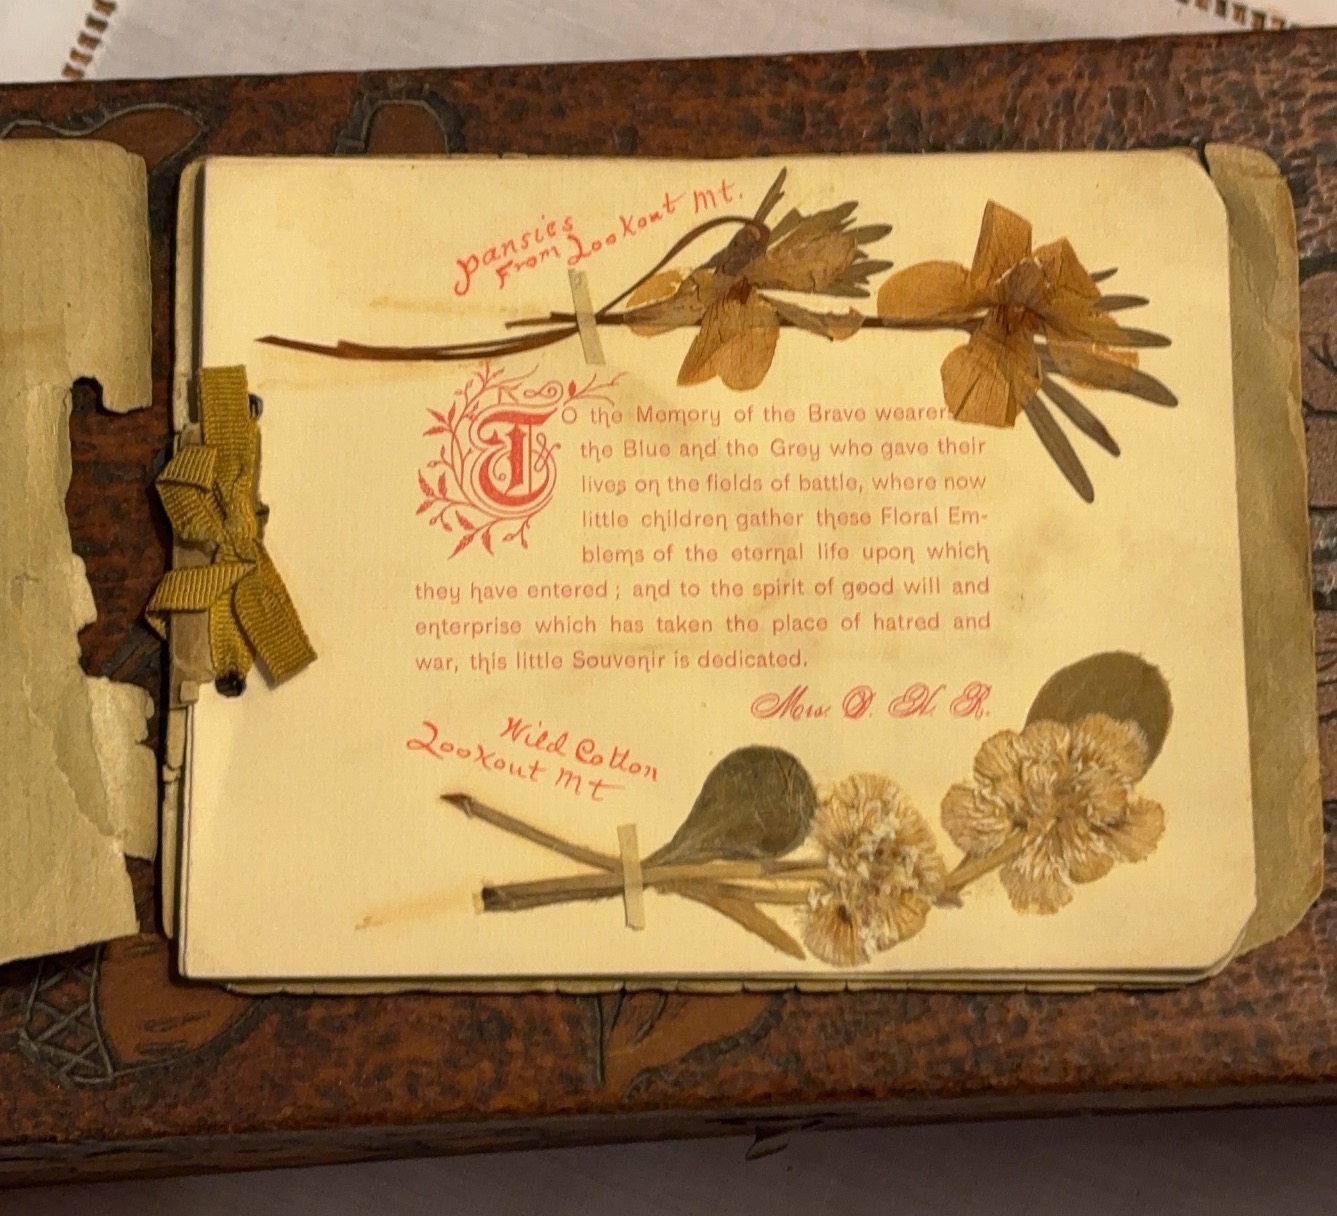 pansies
From Lookout Mt.
To the Memory of the Brave wearers
the Blue and the Grey who gave their
lives on the fields of battle, where now
little children gather these Floral Em-
blems of the eternal life upon which
they have entered; and to the spirit of good will and
enterprise which has taken the place of hatred and
war, this little Souvenir is dedicated.
Mrs. D. H. R.
Wild Cotton
Lookout Mt